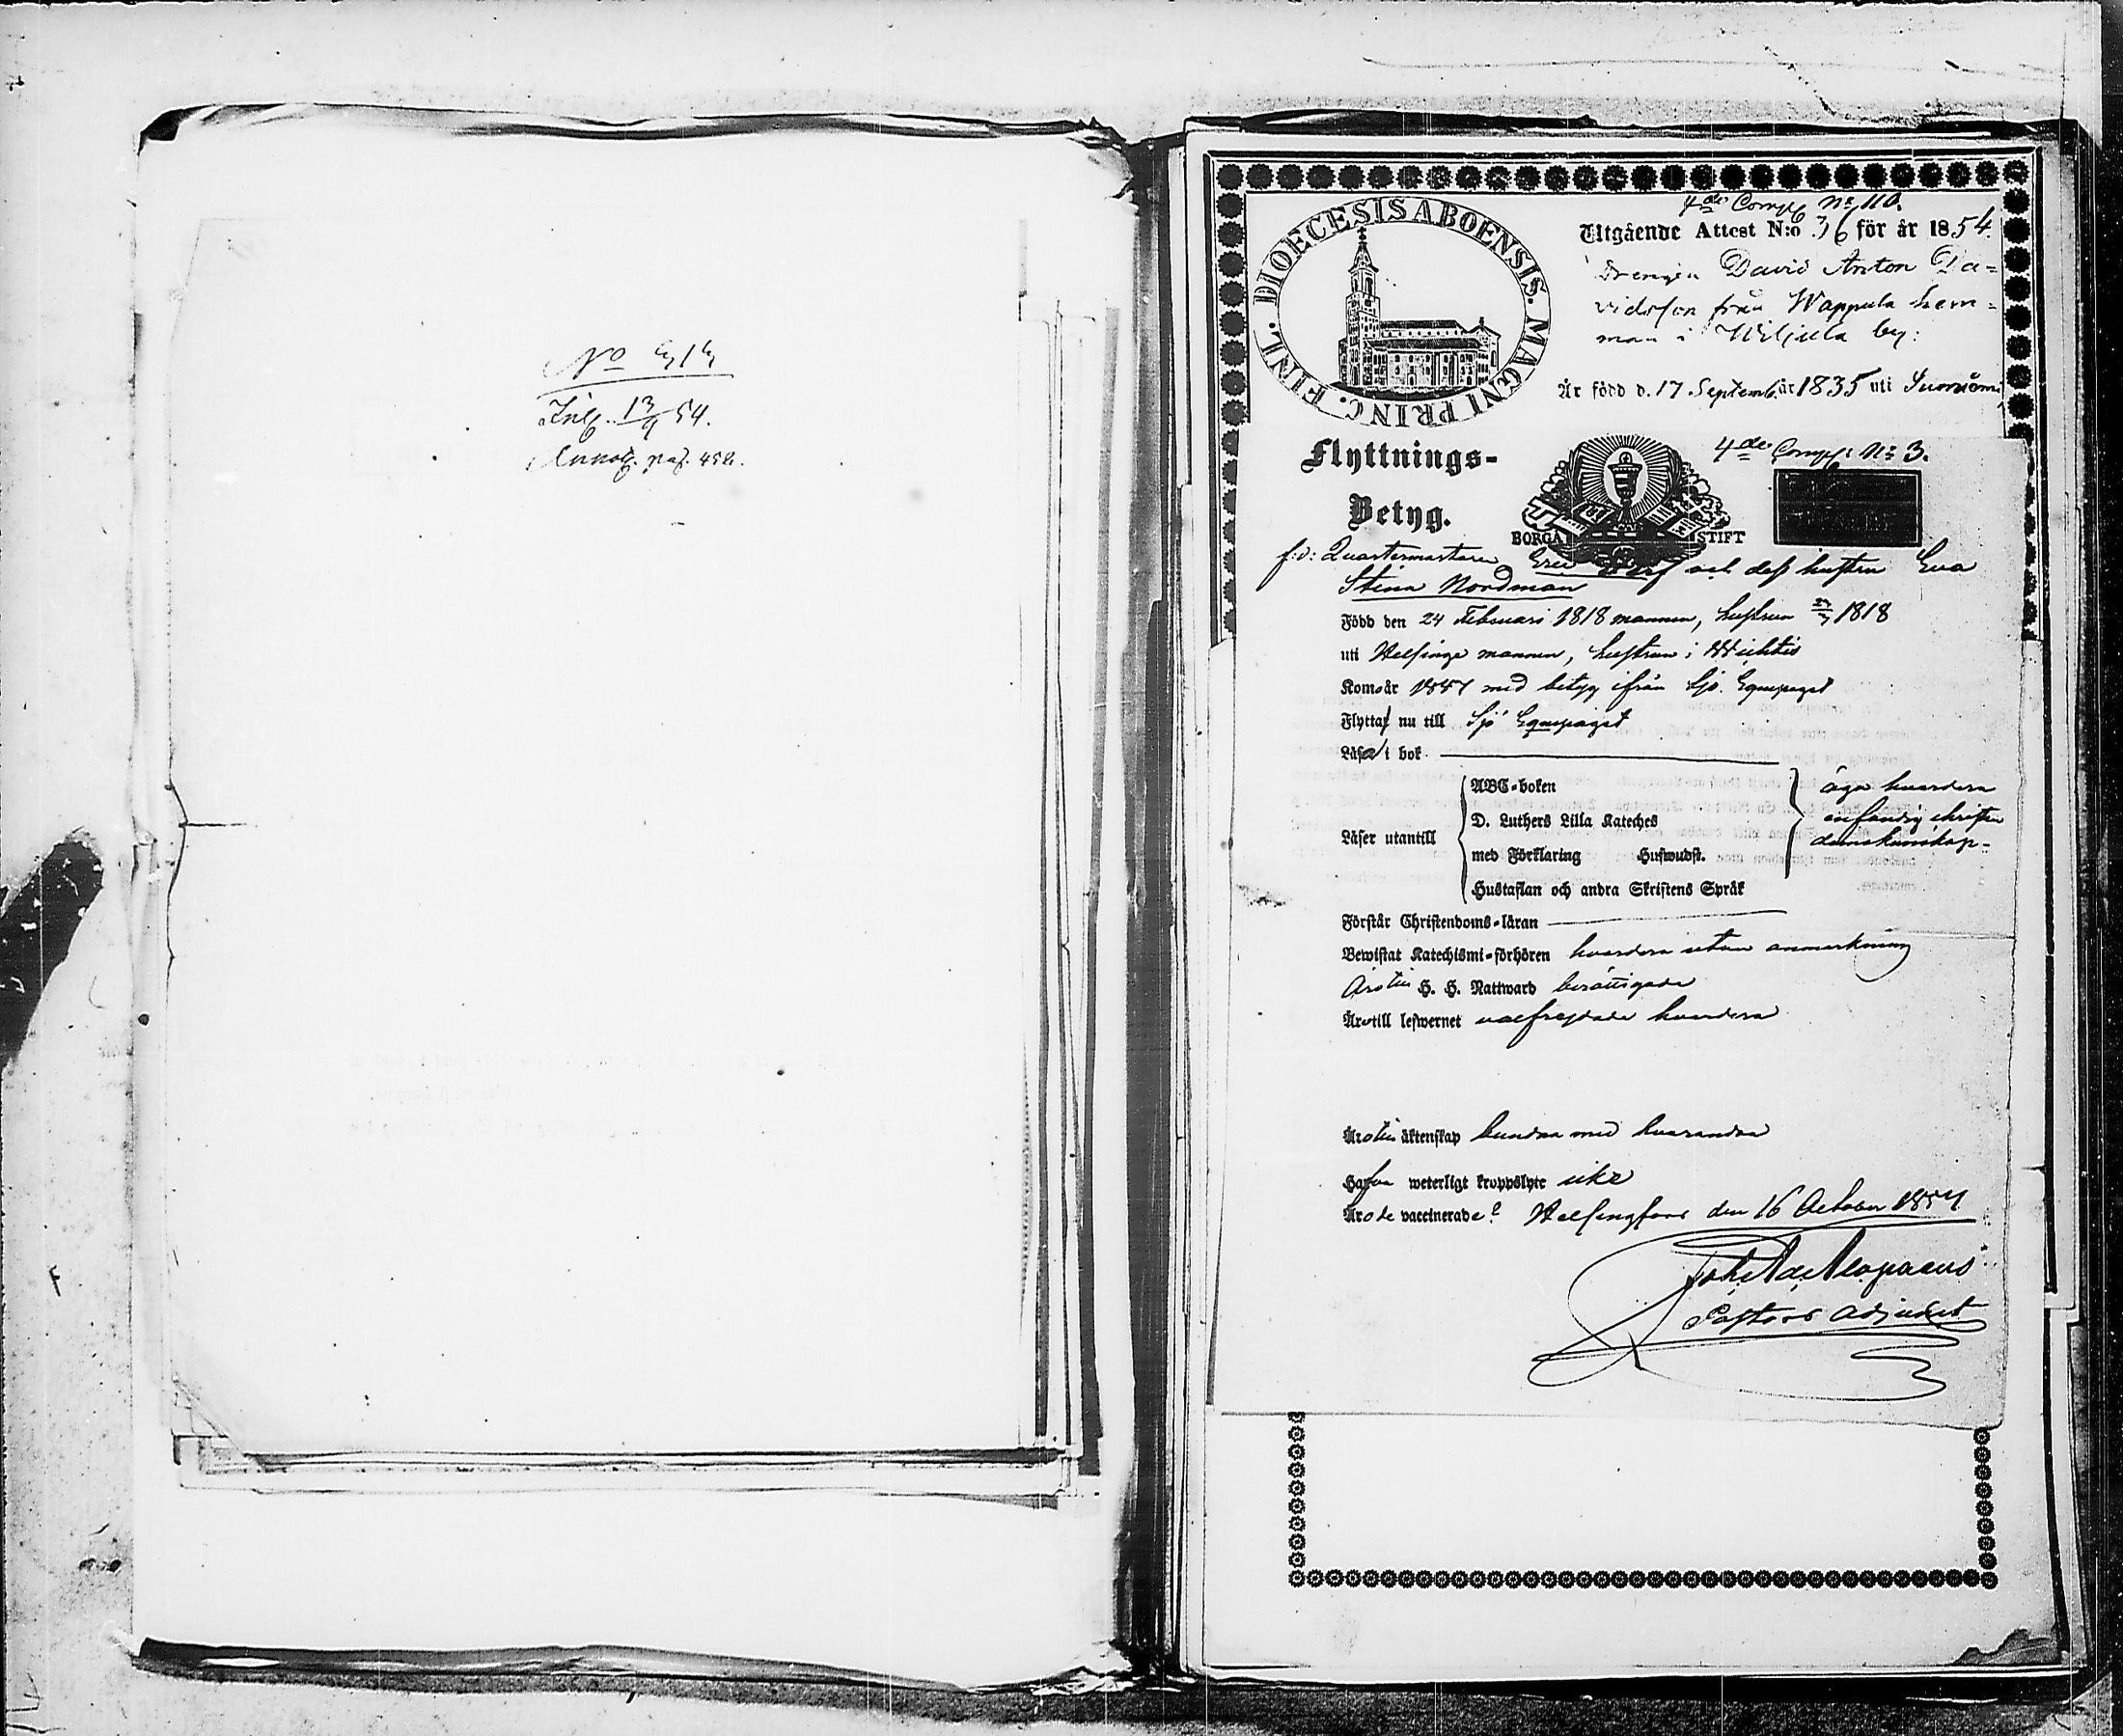 No 414
Inl. 13/9 54.
Annot. pag. 452.
DIOECESIS ABOENSIS. MAGNI PRINC. FINL.
4de Comp No 110.
Utgående Attest N:o 36 för år 1854.
Drengen David Anton Da=
vidsson från Wappula hem=
man i Wiljula by:
Är född d. 17 Septemb. år 1835 uti Suoniemi
Flyttnings-
Betyg.
4de Comp: No 3.
BORGÅ STIFT
f:d: Quartermastaren och dess hustru Eva
Stina Nordman
Född den 24 Februari 1818 mannen, hustrun 1818
uti Helsinge mannen, hustrun i Wichtis
Kom år med betyg ifrån Sjö Equipaget
Flytta nu till Sjö Equipaget
Läsa i bok
ABC-boken
D. Luthers Lilla Kateches
Läser utantill
med Förklaring Hufwudst.
Hustaflan och andra Skriftens Språk
äga hvardera
enfaldig christen
domskunskap-
Förstår Christendoms-läran
Bewistat Katechismi-förhören hvardera utan anmerkning
Äro till H. H. Nattward berättigade
Äro till lefwernet välfrejdade hvardera
Äro till äktenskap bundna med hvarandra
Hafva weterligt kroppslyte icke
Äro de vaccinerade? Helsingfors den 16 October
Alopaeus
Pastors adjunct